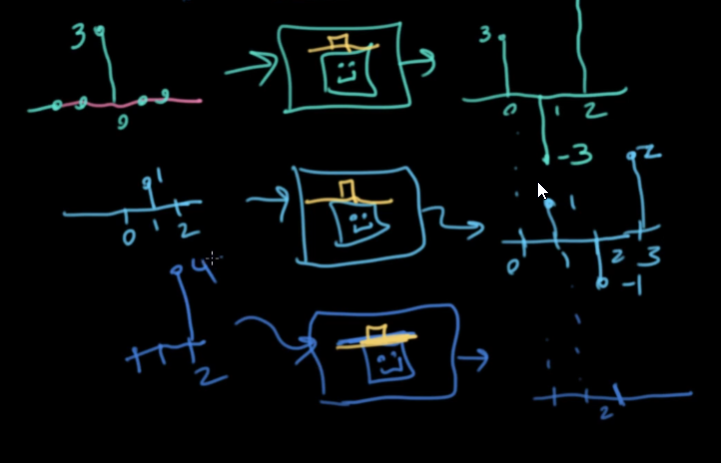 3
3
0
0 1 2
-3
1
2
0 1 2
1
0 1 2 3
-1
4
2
2